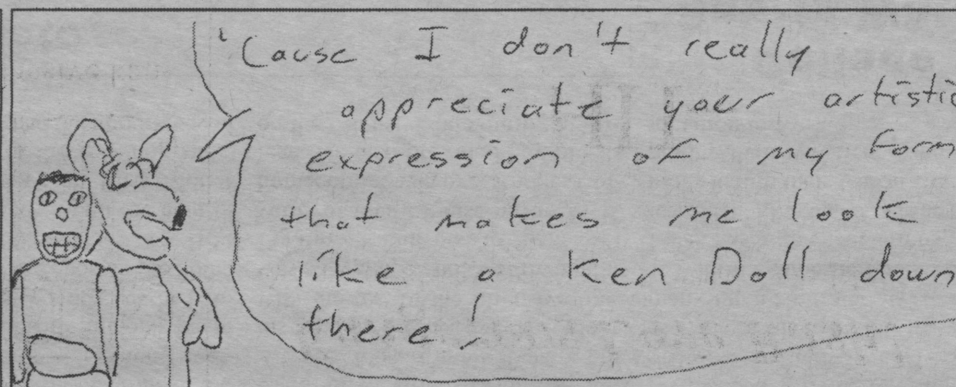 'Cause I don't really
appreciate your artistic
expression of my form
that makes me look
like a Ken Doll down
there!